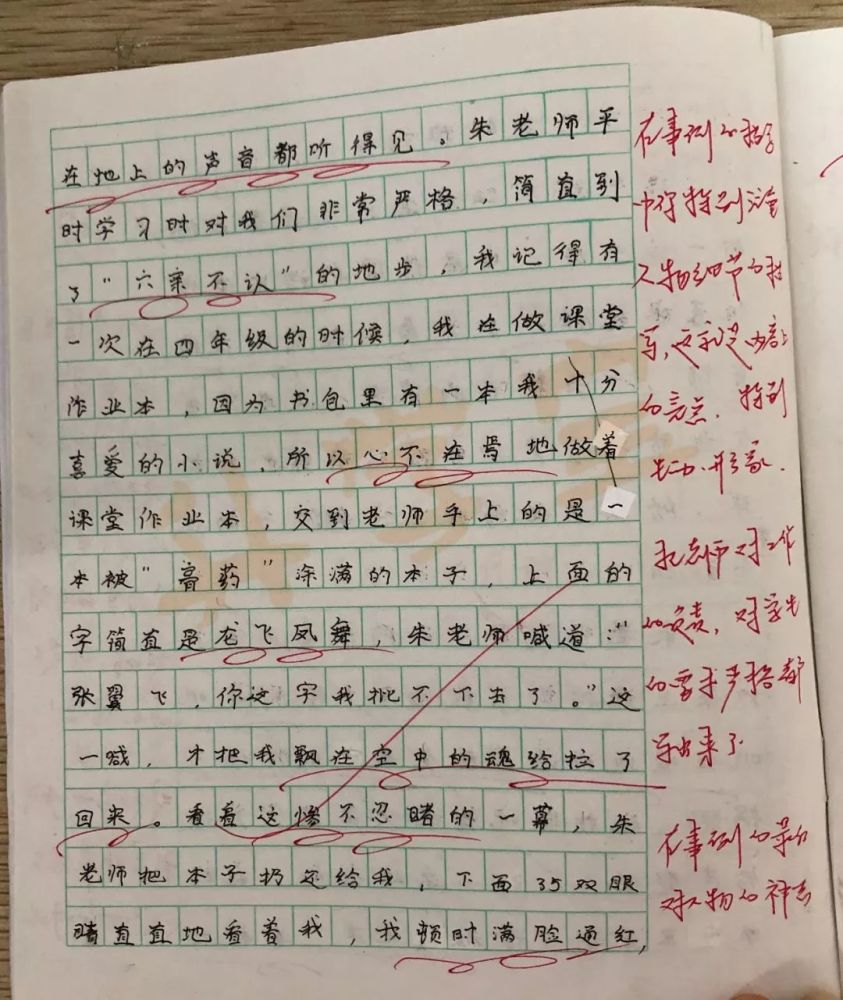 在地上的声音都听得见。朱老师平
时学习时对我们非常严格，简直到
了“六亲不认”的地步，我记得有
一次在四年级的时候，我在做课堂
作业本，因为书包里有一本我十分
喜爱的小说，所以心不在焉地做着
课堂作业本，交到老师手上的是一
本被“膏药”涂满的本子，上面的
字简直是龙飞凤舞，朱老师喊道：“
张翼飞，你这字我批不下去了。”这
一喊，才把我飘在空中的魂给拉了
回来。看着这惨不忍睹的一幕，朱
老师把本子扔还给我，下面35双眼
睛直直地看着我，我顿时满脸通红，
在事例的
中你特别注重
人物细节的描
写，这就是内容上
的亮点，特别
生动、形象。
把老师对工作
的负责，对学生
的要求严格都
写出来了
在事例的
对人物的神态